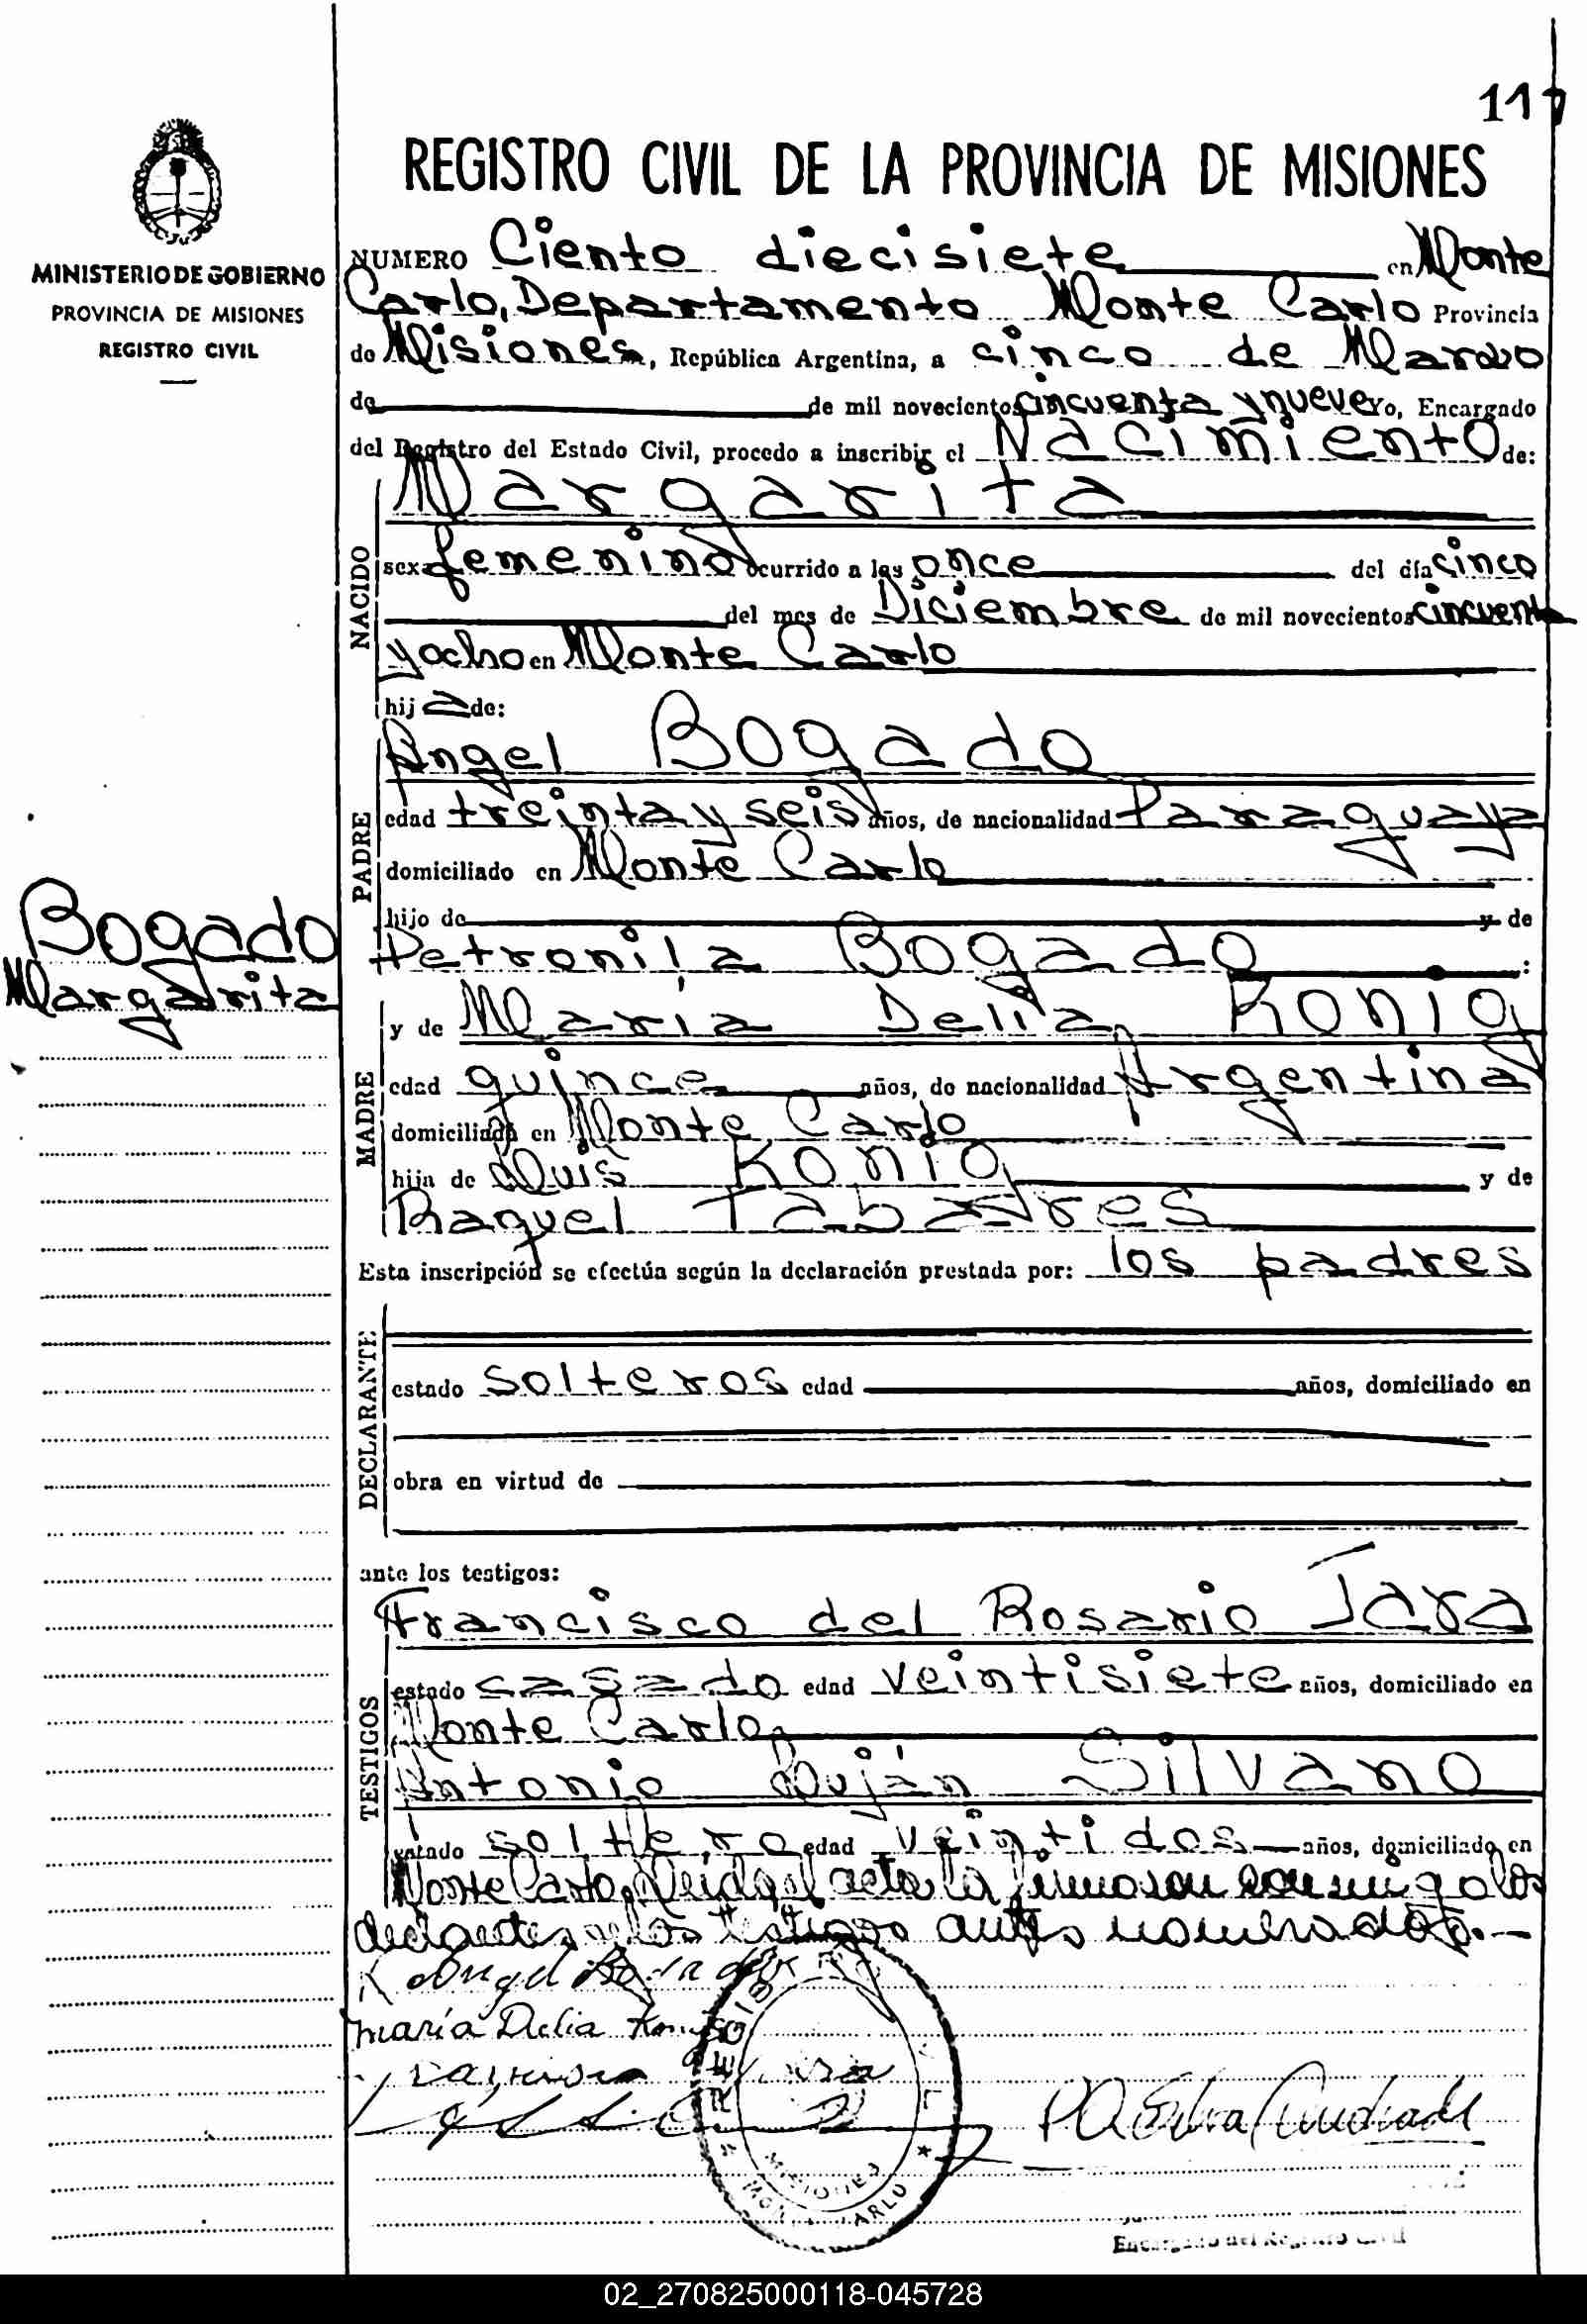 117
MINISTERIO DE GOBIERNO
PROVINCIA DE MISIONES
REGISTRO CIVIL
REGISTRO CIVIL DE LA PROVINCIA DE MISIONES
NUMERO Ciento diecisiete en Monte
Carlo, Departamento Monte Carlo Provincia
de Misiones, República Argentina, a cinco de Marzo
de de mil novecientos cincuenta y nueve Yo, Encargado
del Registro del Estado Civil, procedo a inscribir el Nacimiento de:
NACIDO
Margarita
sexo femenino ocurrido a las once del día cinco
del mes de Diciembre de mil novecientos cincuenta
y ocho en Monte Carlo
hija de:
PADRE
Angel Bogado
edad treinta y seis años, de nacionalidad Paraguaya
domiciliado en Monte Carlo
hijo de y de
Petronila Bogado :
Bogado
Margarita
MADRE
y de María Delia Konig
edad quince años, de nacionalidad Argentina
domiciliada en Monte Carlo
hija de Luis Konig y de
Raquel Tabares
Esta inscripción se efectúa según la declaración prestada por: los padres
DECLARANTE
estado solteros edad años, domiciliado en
obra en virtud de
ante los testigos:
TESTIGOS
Francisco del Rosario Jara
estado casado edad veintisiete años, domiciliado en
Monte Carlo,
Antonio Luján Silvano
estado soltero edad veintidos años, domiciliado en
Monte Carlo, Leida el acta la firmaron conmigo los
declarantes y los testigos antes nombrados.-
Angel Bogado
María Delia Konig
Jara
REGISTRO
MISIONES
MONTE CARLO
Encargado del Registro Civil
02_270825000118-045728